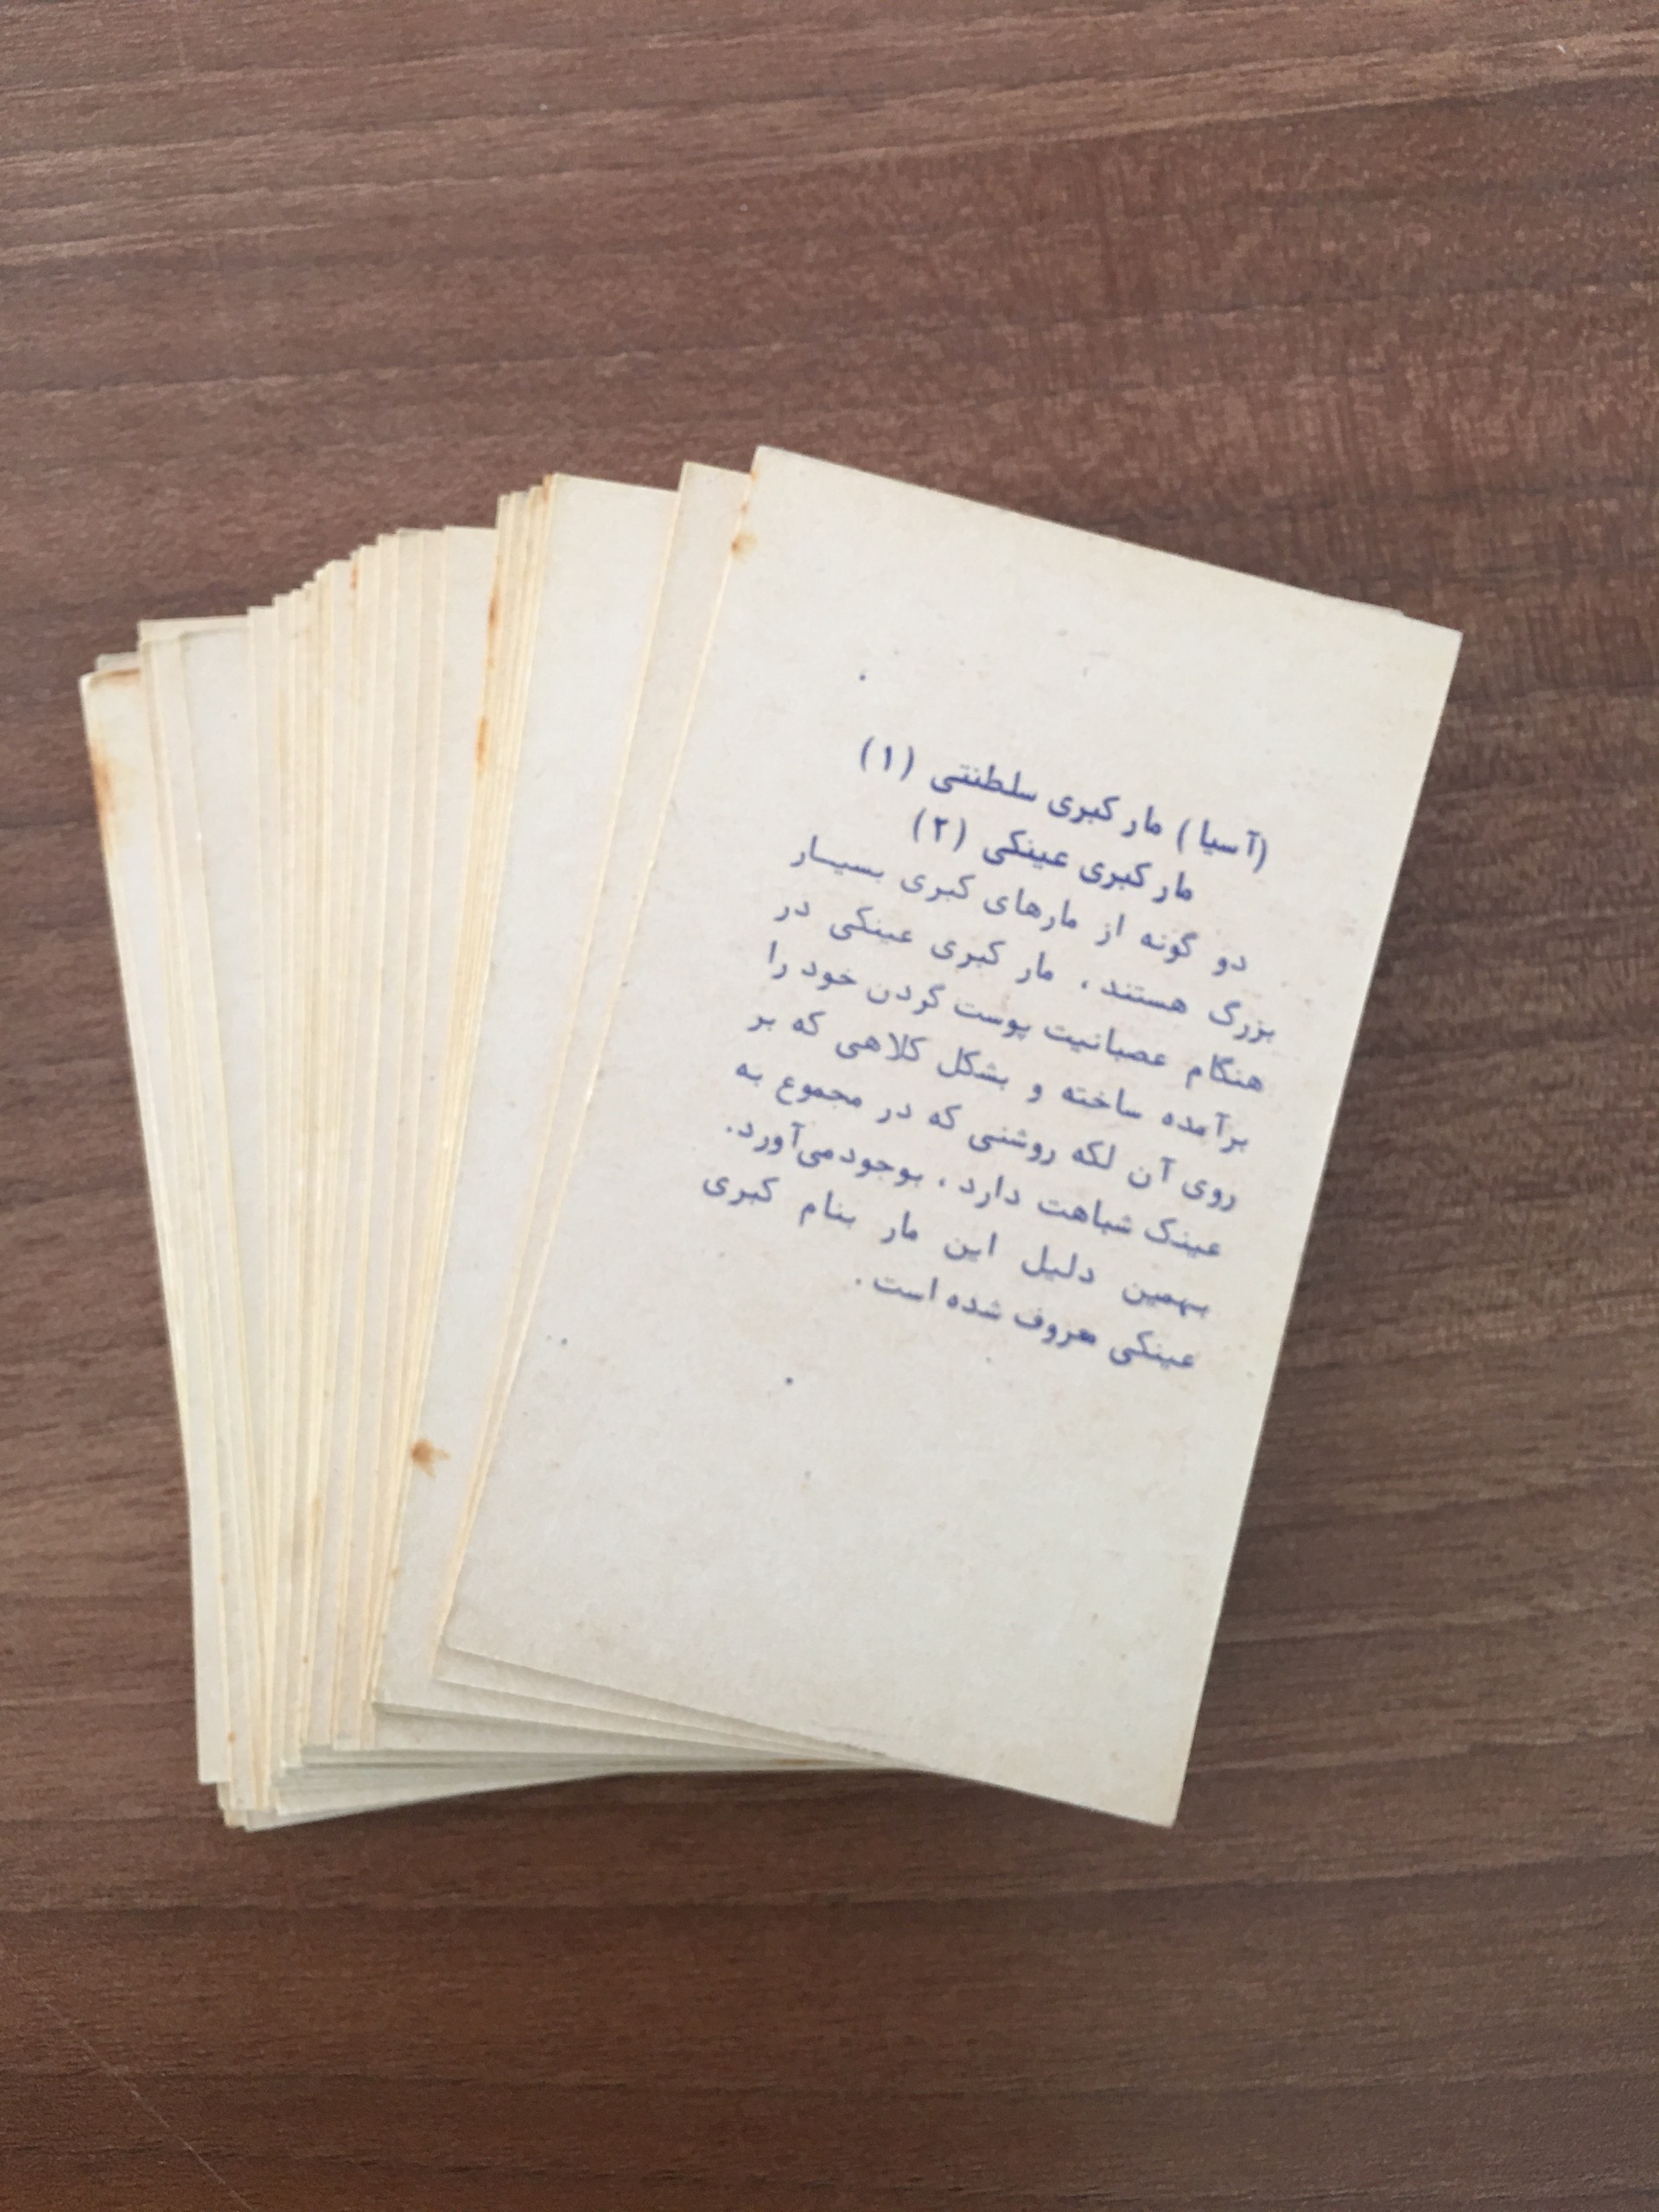 (آسیا) مار کبری سلطنتی (۱)
مار کبری عینکی (۲)
دو گونه از مارهای کبری بسیار
بزرگ هستند، مار کبری عینکی در
هنگام عصبانیت پوست گردن خود را
برآمده ساخته و بشکل کلاهی که بر
روی آن لکه روشنی که در مجموع به
عینک شباهت دارد، بوجود می‌آورد.
بهمین دلیل این مار بنام کبری
عینکی معروف شده است.